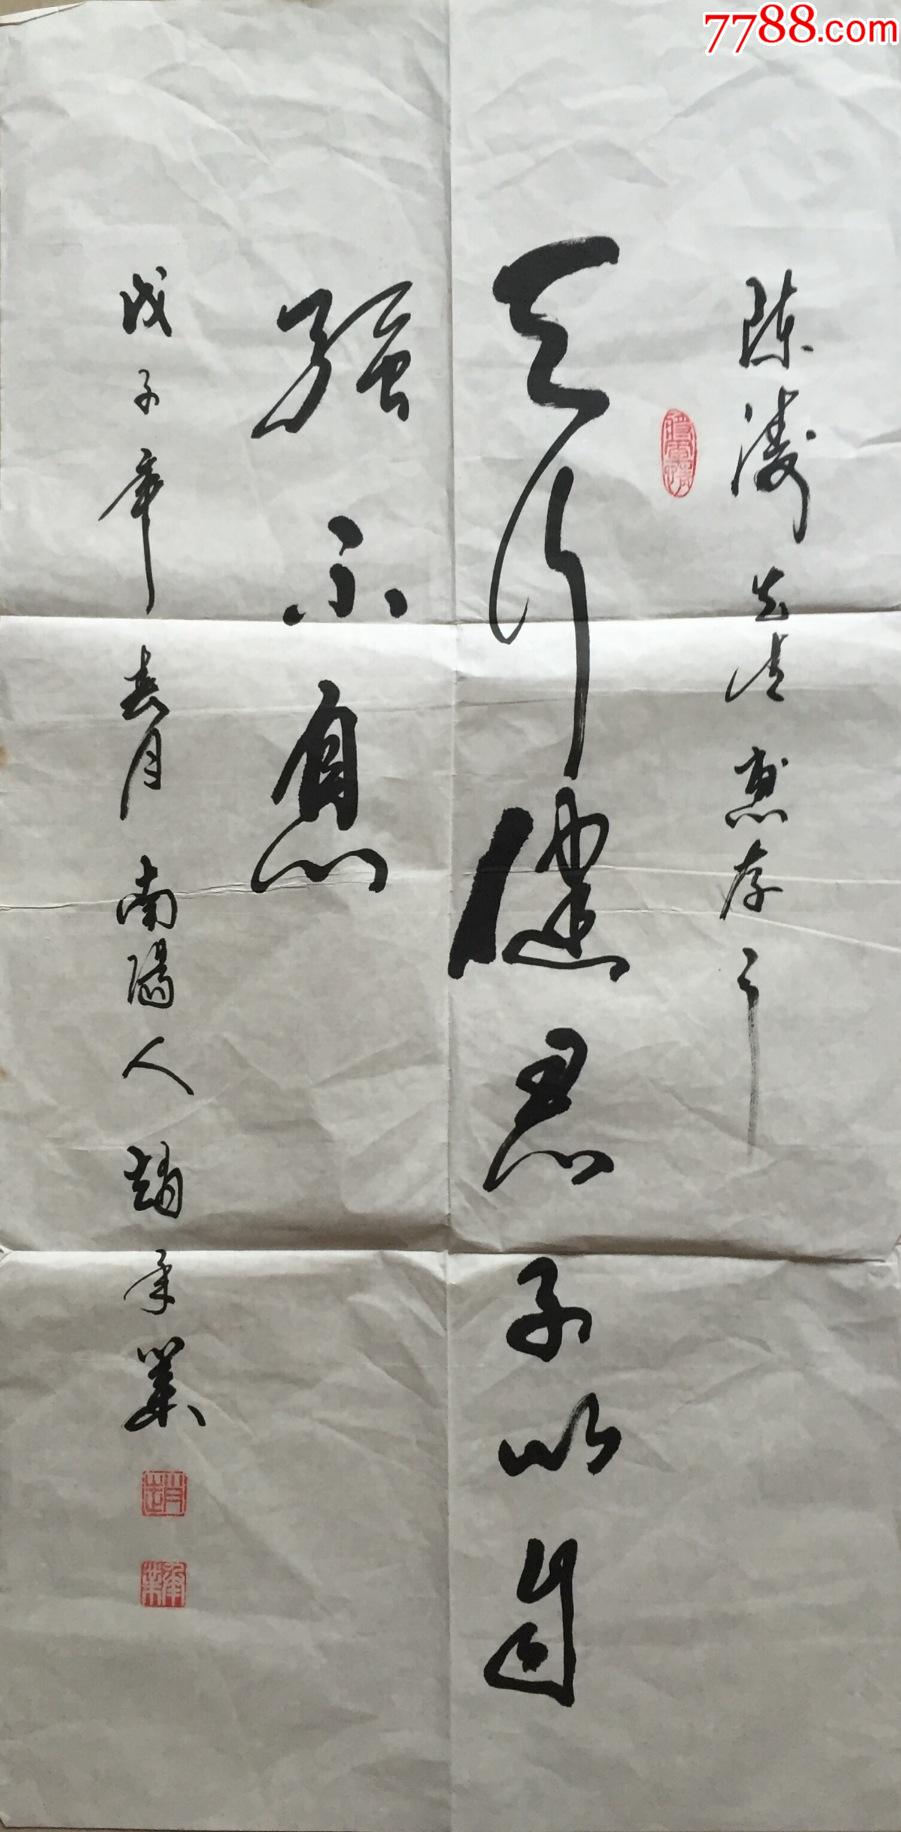 7788.com
陈涛先生惠存
天行健君子以自
强不息
戊子年春月南陽人趙承業